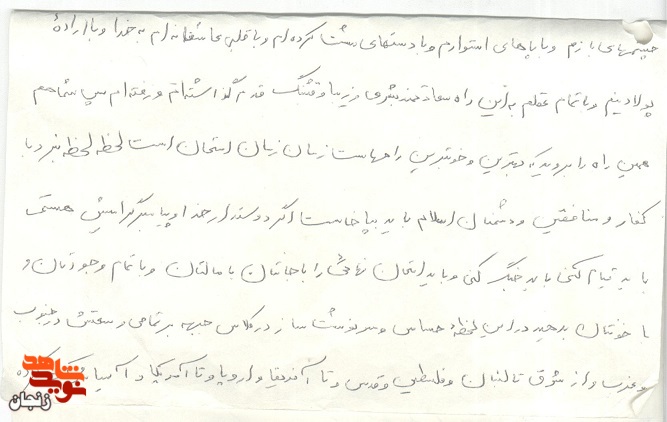 چشمهای بازم و با پاهای استوارم و با دستهای مشت کرده‌ام و با قلب عاشقانه‌ام به خدا و با ارادهٔ
پولادینم و با تمام عقلم به این راه سعادتمند بشری زیبا و قشنگ قدم گذاشته‌ام و رفته‌ام پس شما هم
همین راه را بروید که بهترین و خوبترین راههاست زمان زمان امتحان است لحظه لحظه نبرد با
کفار و منافقین و دشمنان اسلام باید بپا خاست اگر دوستدار خدا و پیامبر گرامیش هستی
باید قیام کنی باید جنگ کنی و باید امتحان نهائی را با جانتان با مالتان و با تمام وجودتان و
با خونتان بدهید در این لحظهٔ حساس و سرنوشت ساز در کلاس جبهه بر تمامی وسعتش در جنوب
و غرب و از شرق تا لبنان و فلسطین و قدس و تا آفریقا و اروپا و تا آمریکا و آسیا
شاهد
نوید
زنجان